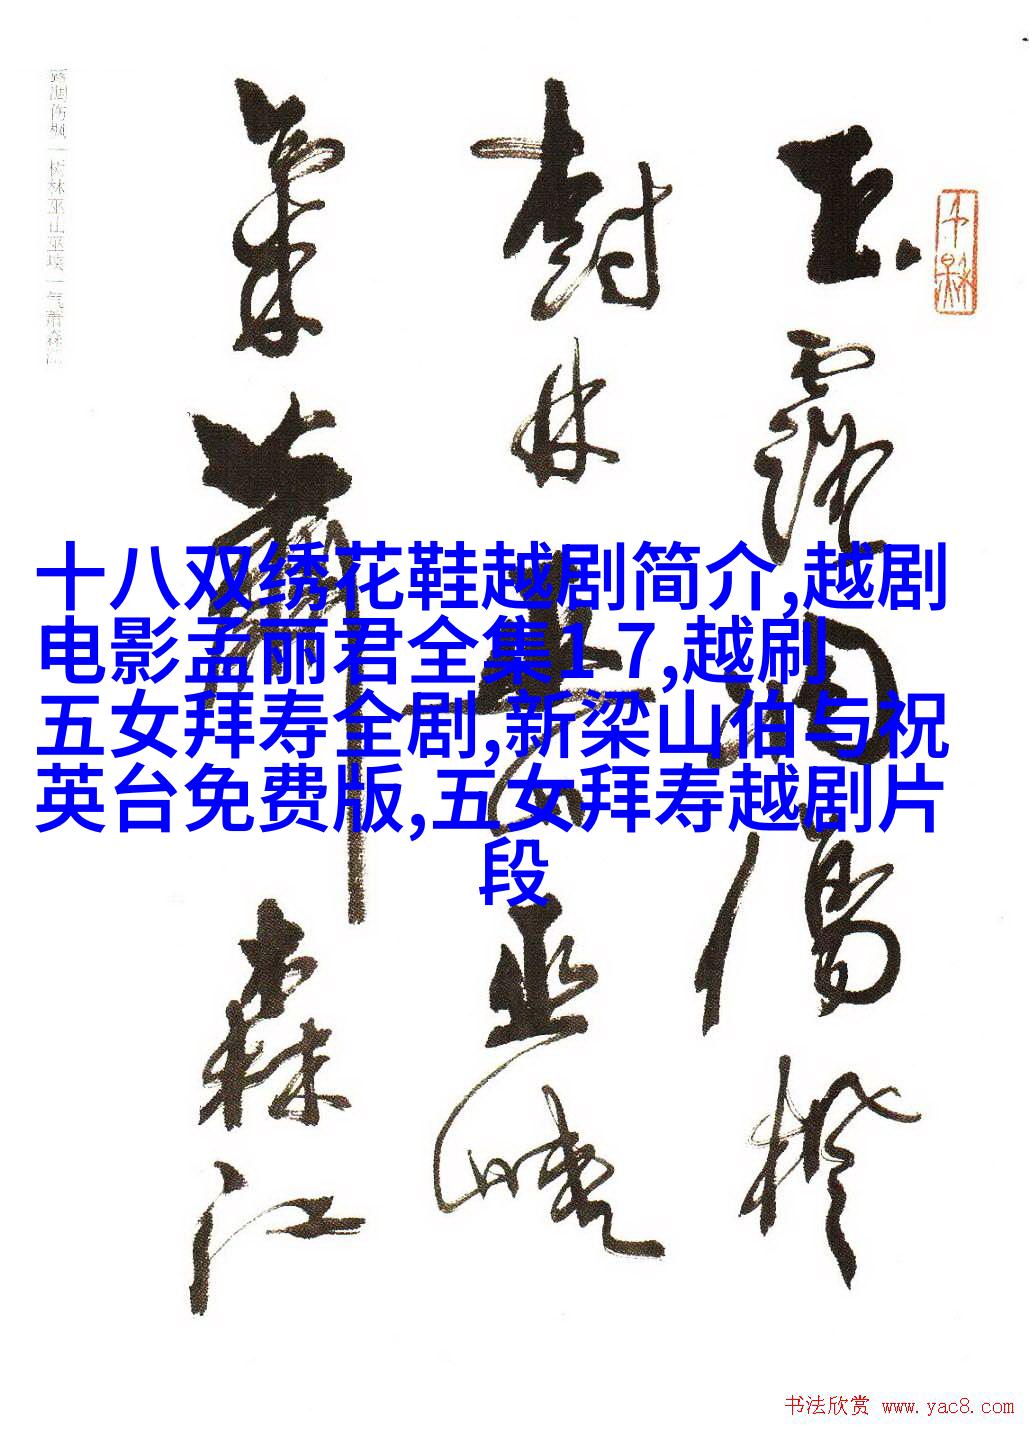 玉露凋傷楓
樹林巫山巫峽
氣蕭森江
十八双绣花鞋越剧简介,越剧
电影孟丽君全集1-7,越刷
五女拜寿全剧,新梁山伯与祝
英台免费版,五女拜寿越剧片
段
书法欣赏 www.yac8.com